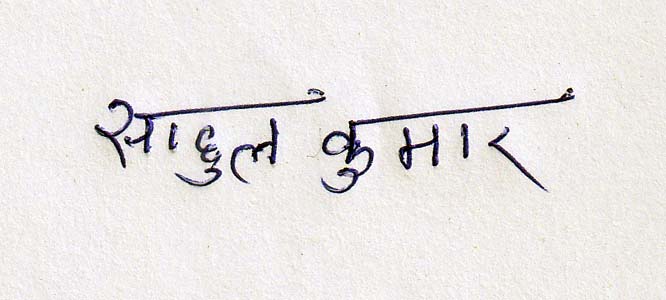 साहुल कुमार